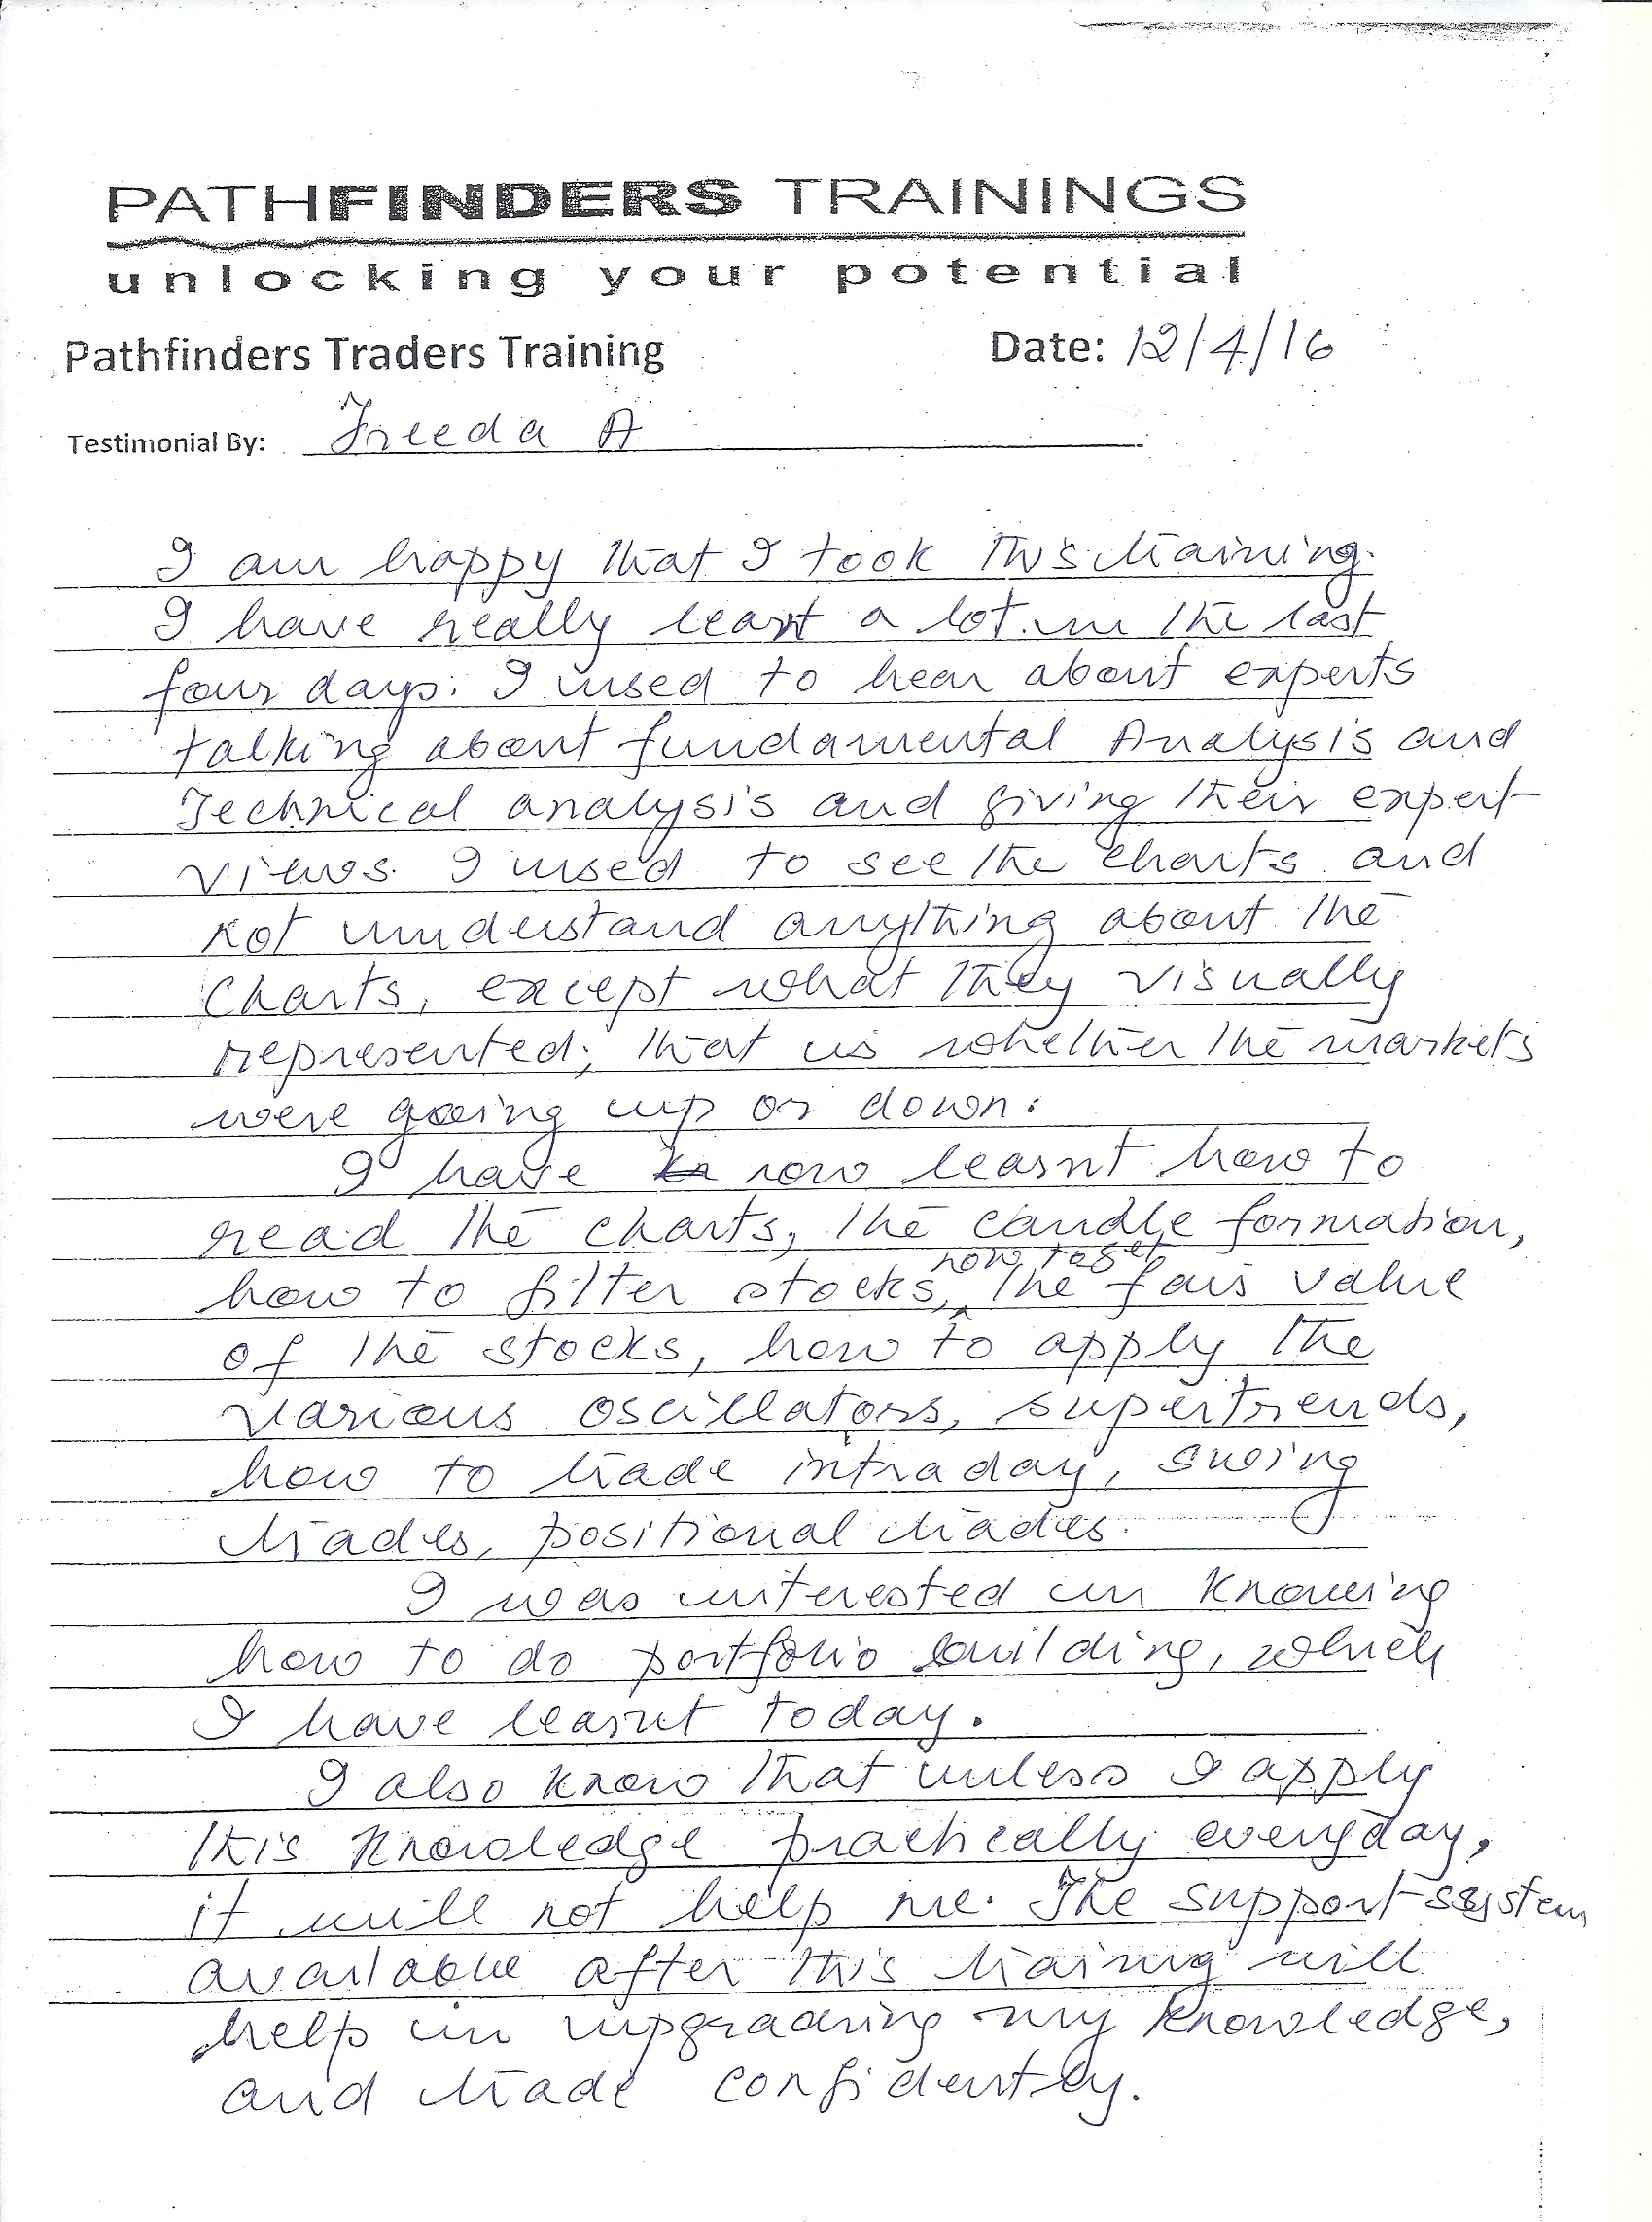 PATHFINDERS TRAININGS
unlocking your potential
Pathfinders Traders Training Date: 12/4/16
Testimonial By: Freeda A
I am happy that I took this training.
I have really learnt a lot in the last
four days. I used to hear about experts
talking about fundamental Analysis and
Technical analysis and giving their expert
views. I used to see the charts and
not understand anything about the
charts, except what they visually
represented; that is whether the markets
were going up or down.
I have now learnt how to
read the charts, the candle formation,
how to get
how to filter stocks, the fair value
of the stocks, how to apply the
various oscillators, supertrends,
how to trade intraday, swing
trades, positional trades.
I was interested in knowing
how to do portfolio building, which
I have learnt today.
I also know that unless I apply
this knowledge practically everyday,
it will not help me. The support system
available after this training will
help in upgrading my knowledge,
and trade confidently.